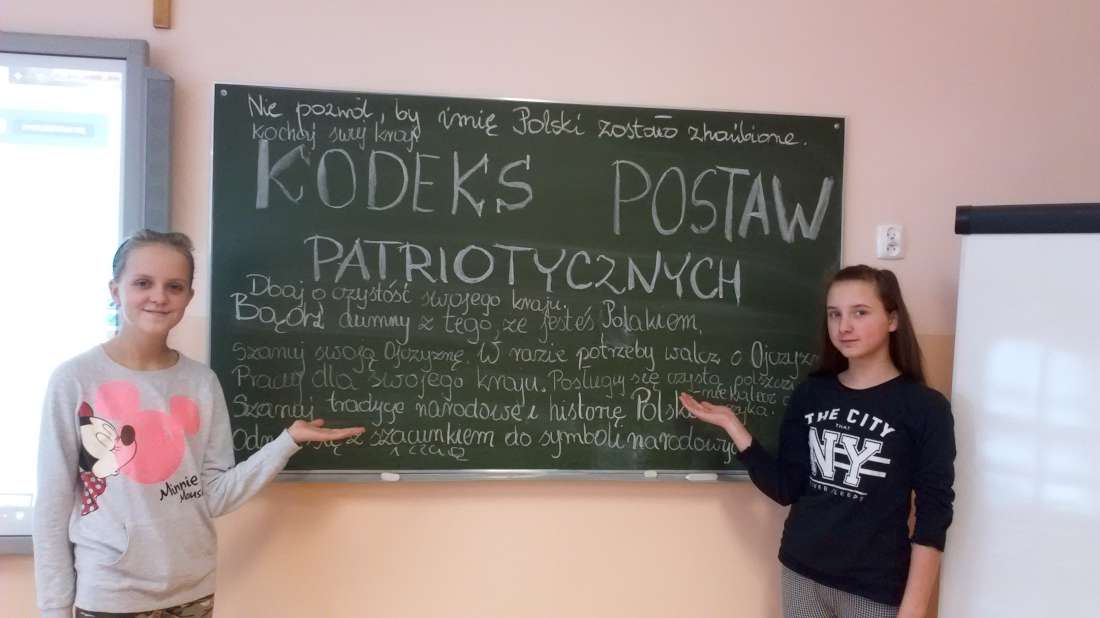 Nie pozwól, by imię Polski zostało zhańbione.
Kochaj swój kraj!
KODEKS POSTAW
PATRIOTYCZNYCH
Dbaj o czystość swojego kraju.
Bądź dumny z tego, że jesteś Polakiem.
Szanuj swoją Ojczyznę. W razie potrzeby walcz o
Pracuj dla swojego kraju. Posługuj się czystą
Szanuj tradycje narodowe i historię
z szacunkiem do symboli
i czcią
Minnie
Mouse
THE CITY
THAT
NY